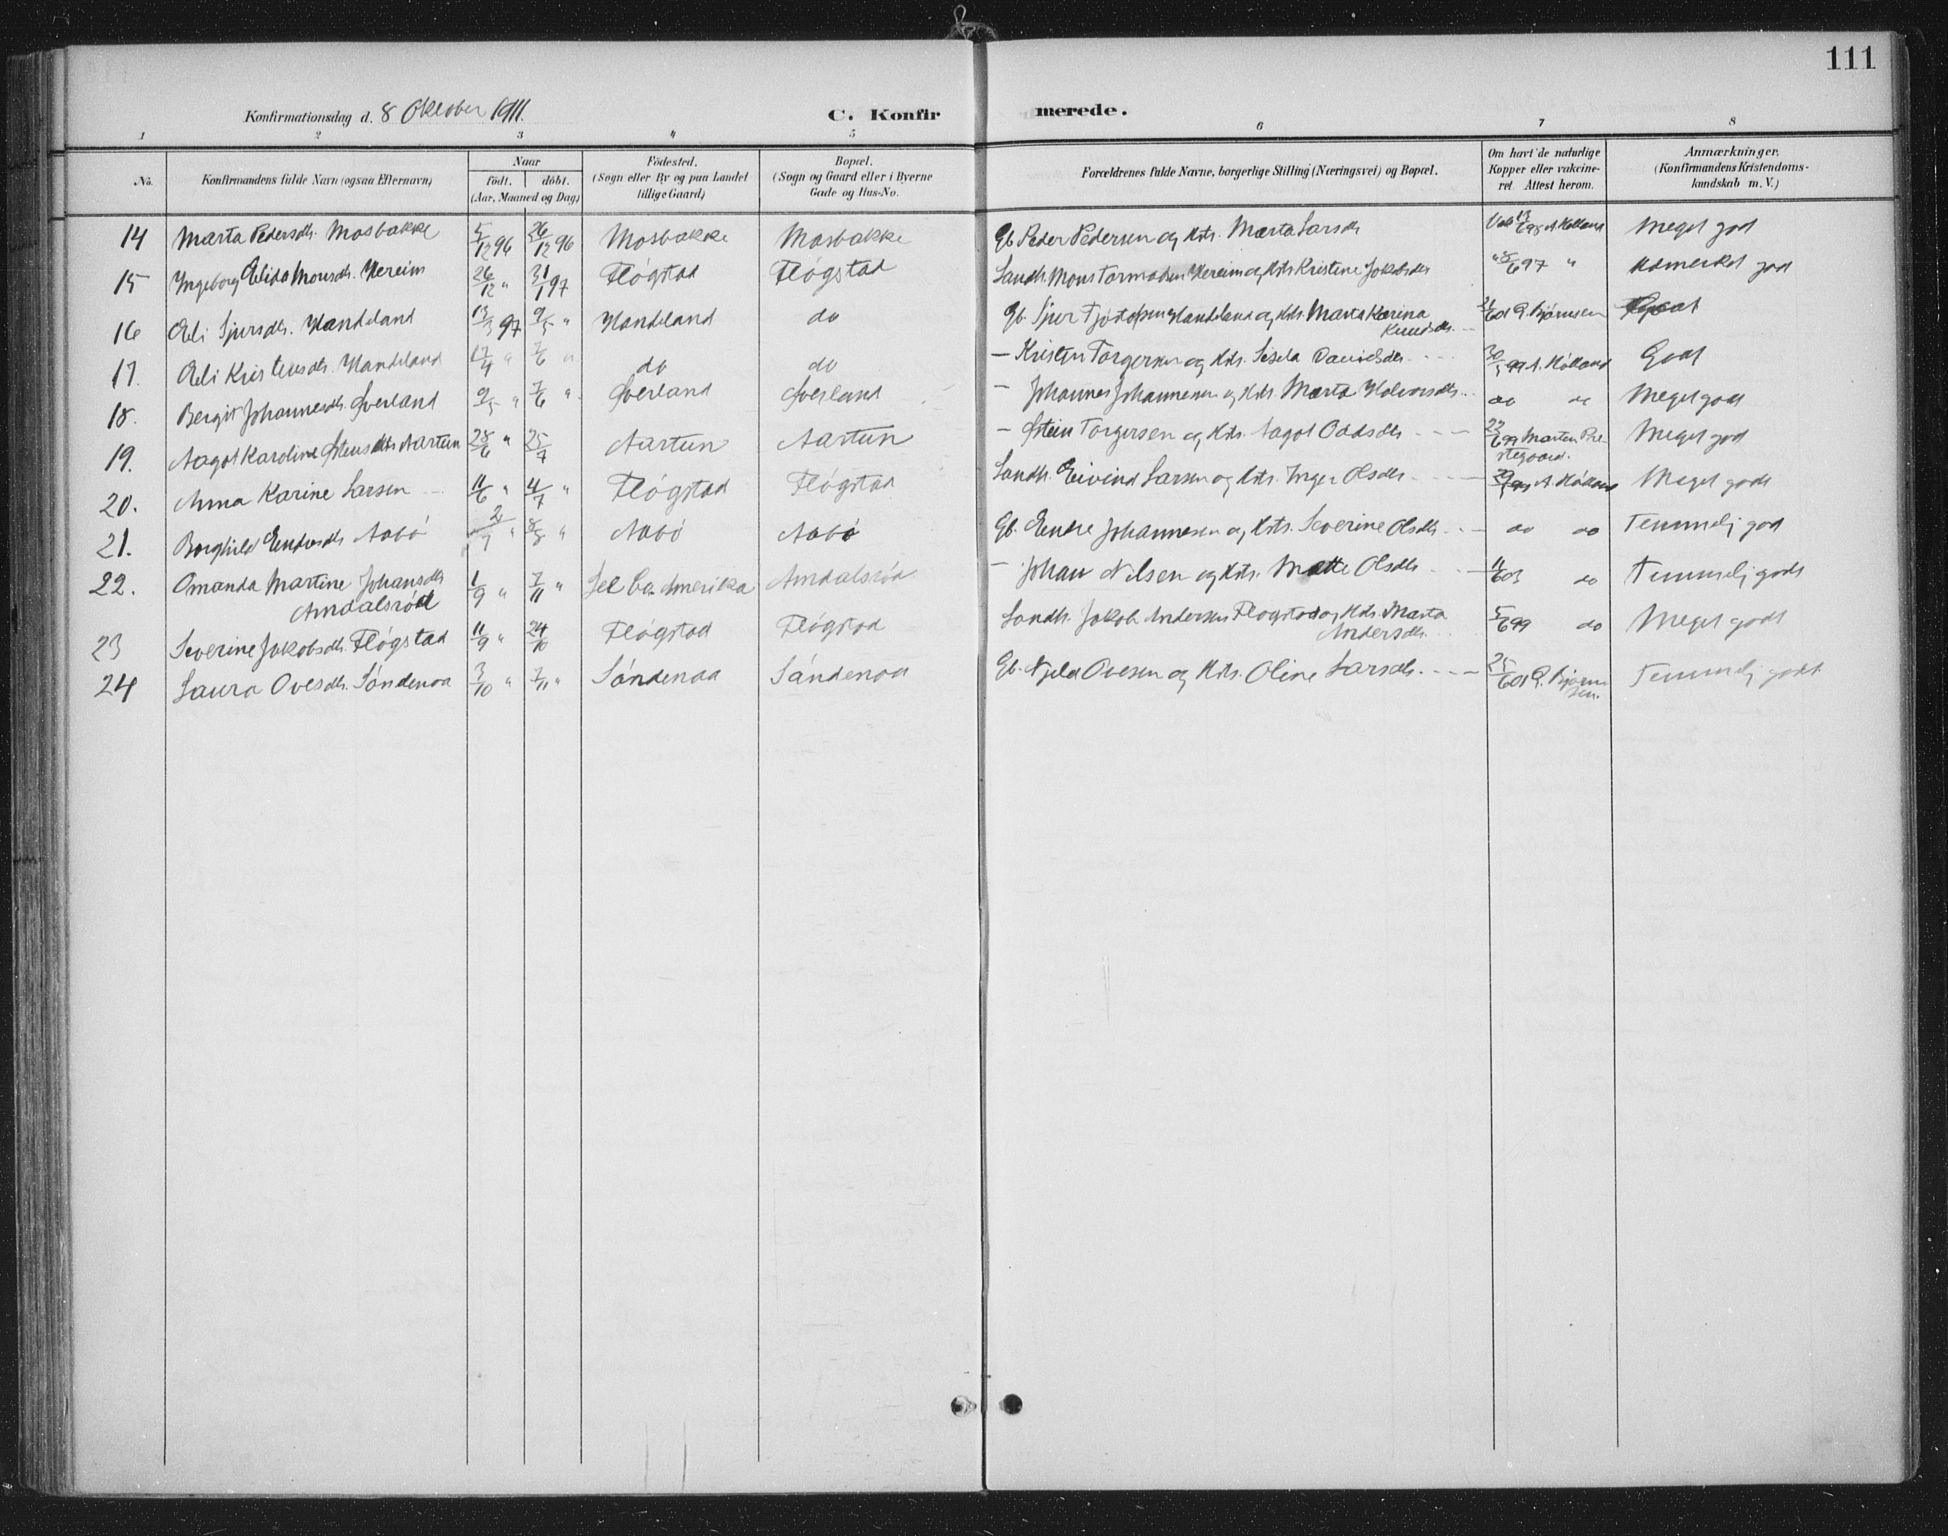 111
Konfirmationsdag d. 8 Oktober 1911.
C. Konfirmerede.
1 2 3 4 5 6 7 8
No.
Konfirmandens fulde Navn (ogsaa Efternavn)
Naar
födt. döbt.
(Aar, Maaned og Dag)
Födested.
(Sogn eller By og paa Landet
tillige Gaard)
Bopæl.
(Sogn og Gaard eller i Byerne
Gade og Hus-No.
Forældrenes fulde Navne, borgerlige Stilling (Næringsvei) og Bopæl.
Om havt de naturlige
Kopper eller vakcine-
ret. Attest herom.
Anmærkninger.
(Konfirmandens Kristendoms-
kundskab m. V.)
14 Marta Pedersdtr. Mosbakke 5/12 96 26/12 96 Mosbakke Mosbakke Gb. Peder Pedersen og Kts. Marta Larsdtr Meget god
15 Ingeborg Elida Monsdtr. Hereim 26/12 " 31/1 97 Fløgstad Fløgstad Landh. Mons Tormodsen Hereim og Kts Kristine Jokobsdtr 97 " Udmerket god
16 Eli Sjursdtr. Handeland 13/3 97 9/5 " Handeland do Gb. Sjur Handeland og Kts. Marta Karina
Knudsdtr. 601 G. Bjørnsen
17. Eli Kristensdtr. Handeland 17/4 " 7/6 " do do — Kristen Torgersen og Kts. Sisela Davidsdtr 30/5 99 A. Hølland Godt
18. Bergit Johannesdtr. Øverland 9/5 " 7/6 " Øverland Øverland — Johannes Johannesen og Kts. Marta Halvorsdtr do do Meget godt
19. Aagot Karoline Steinsdtr Aartun 28/6 " 25/7 Aartun Aartun — Østein Torgersen og Kts. Aagot Oddsdtr 22/6 99 Marten Pre
stegaard. Meget god
20. Anna Karine Larsen 11/6 " 4/7 " Fløgstad Fløgstad Landh. Eivind Larsen og Kts. Inger Olsdtr A. Hølland Meget godt
21. Borghild Endresdtr Aabø 2/7 " 8/8 " Aabø Aabø Gb. Endre Johannesen og Kts. Severine Olsdtr do do Temmelig god
22. Omanda Martine Johansdtr
Amdalsrød 1/9 " 7/11 " Amerika Amdalsrød — Johan Nilsen og Kts. Mette Olsdtr 11/6 03 do Temmelig godt
23 Severine Jakobsdtr. Fløgstad 11/9 " 24/10 Fløgstad Fløgstad Landh. Jakob Andersen Fløgstad og Kts. Marta
Andersdtr. 5/6 99 do Meget godt
24 Laura Ovesdtr. Søndenaa 3/10 " 7/11 " Søndenaa Søndenaa Gb. Njeld Ovesen og Kts. Oline Larsdtr. 25/6 01 G. Bjørn
sen. Temmelig godt